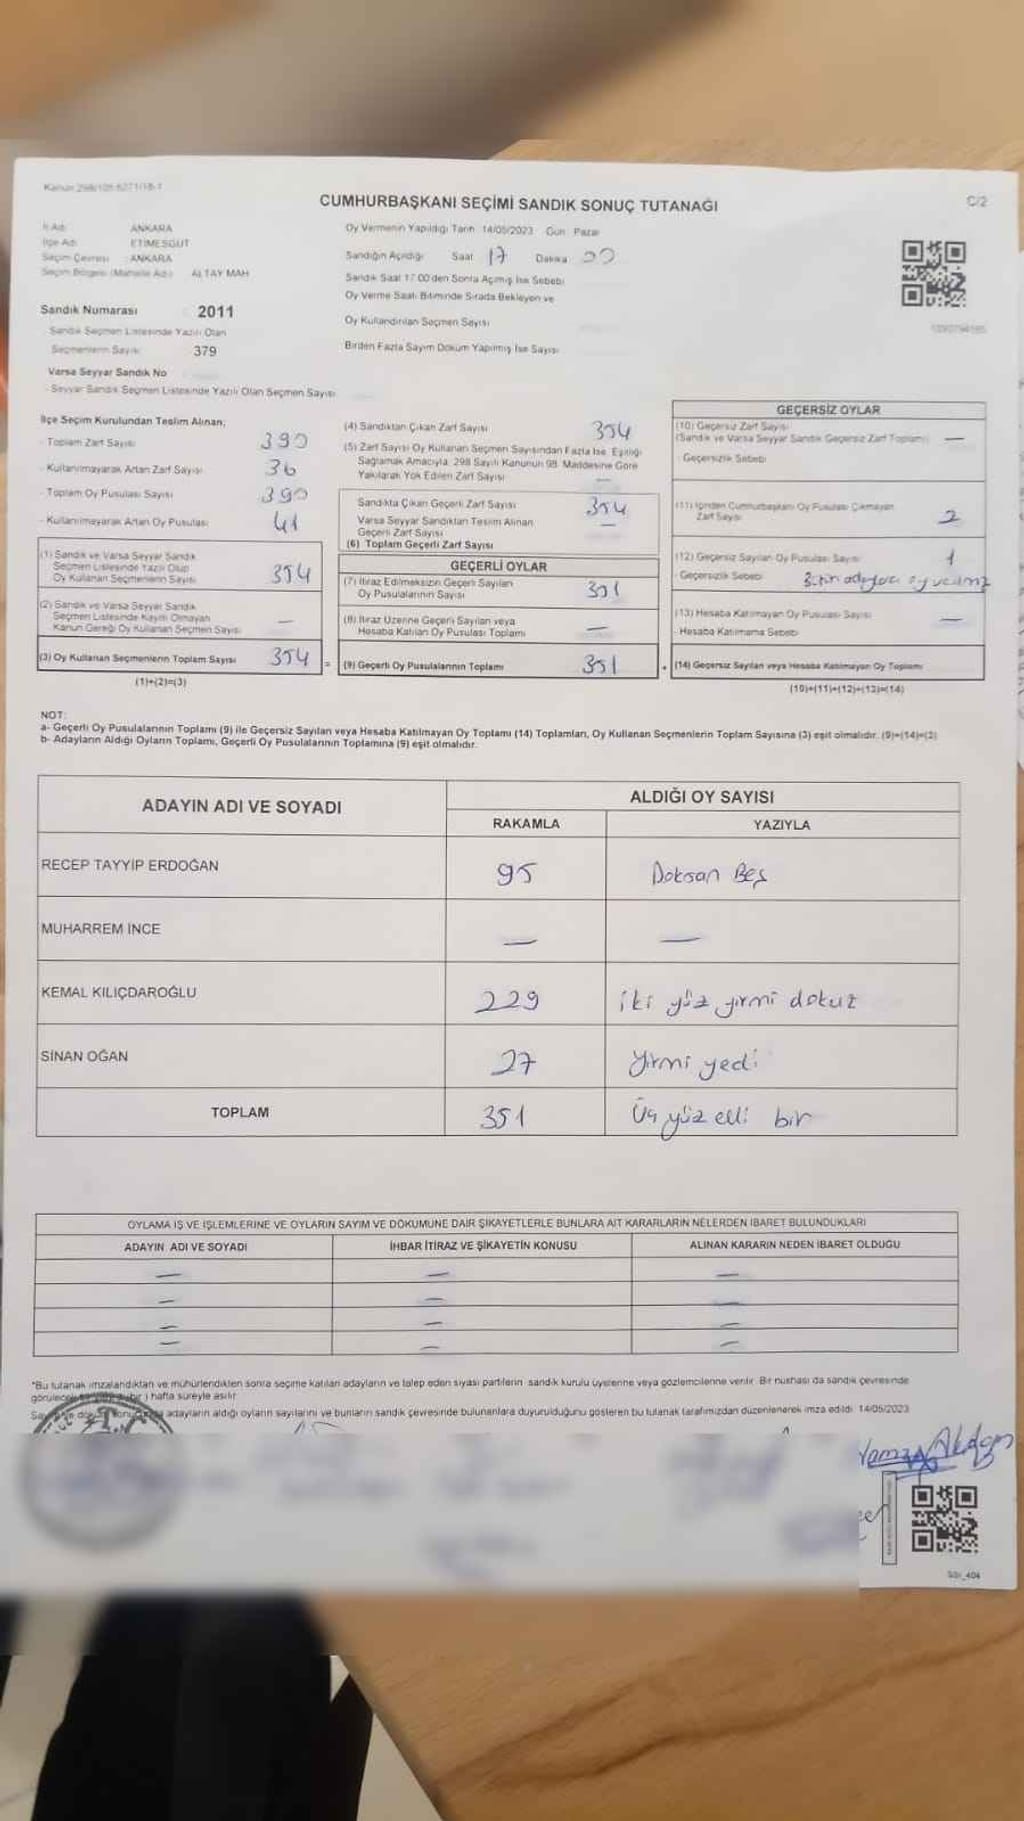 Kanun 298/105-6271/18-1
CUMHURBAŞKANI SEÇİMİ SANDIK SONUÇ TUTANAĞI
C/2
İl Adı: ANKARA
İlçe Adı: ETİMESGUT
Seçim Çevresi: ANKARA
Seçim Bölgesi (Mahalle Adı): ALTAY MAH
Sandık Numarası 2011
Sandık Seçmen Listesinde Yazılı Olan
Seçmenlerin Sayısı 379
Varsa Seyyar Sandık No
- Seyyar Sandık Seçmen Listesinde Yazılı Olan Seçmen Sayısı
Oy Vermenin Yapıldığı Tarih 14/05/2023 Gün: Pazar
Sandığın Açıldığı Saat 17 Dakika 00
Sandık Saat 17.00'den Sonra Açılmış İse Sebebi
Oy Verme Saati Bitiminde Sırada Bekleyen ve
Oy Kullandırılan Seçmen Sayısı
Birden Fazla Sayım Döküm Yapılmış İse Sayısı
İlçe Seçim Kurulundan Teslim Alınan;
- Toplam Zarf Sayısı 390
- Kullanılmayarak Artan Zarf Sayısı 36
- Toplam Oy Pusulası Sayısı 390
- Kullanılmayarak Artan Oy Pusulası 41
(1) Sandık ve Varsa Seyyar Sandık
Seçmen Listesinde Yazılı Olup
Oy Kullanan Seçmenlerin Sayısı 354
(2) Sandık ve Varsa Seyyar Sandık
Seçmen Listesinde Kayıtlı Olmayan
Kanun Gereği Oy Kullanan Seçmen Sayısı —
(3) Oy Kullanan Seçmenlerin Toplam Sayısı 354
(1)+(2)=(3)
(4) Sandıktan Çıkan Zarf Sayısı 354
(5) Zarf Sayısı Oy Kullanan Seçmen Sayısından Fazla İse, Eşitliği
Sağlamak Amacıyla, 298 Sayılı Kanunun 98. Maddesine Göre
Yakılarak Yok Edilen Zarf Sayısı —
Sandıkta Çıkan Geçerli Zarf Sayısı 354
Varsa Seyyar Sandıktan Teslim Alınan
Geçerli Zarf Sayısı —
(6) Toplam Geçerli Zarf Sayısı
GEÇERLİ OYLAR
(7) İtiraz Edilmeksizin Geçerli Sayılan
Oy Pusulalarının Sayısı 351
(8) İtiraz Üzerine Geçerli Sayılan veya
Hesaba Katılan Oy Pusulası Toplamı —
= (9) Geçerli Oy Pusulalarının Toplamı 351
GEÇERSİZ OYLAR
(10) Geçersiz Zarf Sayısı
(Sandık ve Varsa Seyyar Sandık Geçersiz Zarf Toplamı) —
- Geçersizlik Sebebi
(11) İçinden Cumhurbaşkanı Oy Pusulası Çıkmayan
Zarf Sayısı 2
(12) Geçersiz Sayılan Oy Pusulası Sayısı 1
- Geçersizlik Sebebi Bütün adaylara oy verilmiş
(13) Hesaba Katılmayan Oy Pusulası Sayısı —
- Hesaba Katılmama Sebebi
+ (14) Geçersiz Sayılan veya Hesaba Katılmayan Oy Toplamı
(10)+(11)+(12)+(13)=(14)
NOT:
a- Geçerli Oy Pusulalarının Toplamı (9) ile Geçersiz Sayılan veya Hesaba Katılmayan Oy Toplamı (14) Toplamları, Oy Kullanan Seçmenlerin Toplam Sayısına (3) eşit olmalıdır. (9)+(14)=(3)
b- Adayların Aldığı Oyların Toplamı, Geçerli Oy Pusulalarının Toplamına (9) eşit olmalıdır.
ADAYIN ADI VE SOYADI ALDIĞI OY SAYISI
RAKAMLA YAZIYLA
RECEP TAYYİP ERDOĞAN 95 Doksan Beş
MUHARREM İNCE — —
KEMAL KILIÇDAROĞLU 229 iki yüz yirmi dokuz
SİNAN OĞAN 27 Yirmi yedi
TOPLAM 351 Üç yüz elli bir
OYLAMA İŞ VE İŞLEMLERİNE VE OYLARIN SAYIM VE DÖKÜMÜNE DAİR ŞİKAYETLERLE BUNLARA AİT KARARLARIN NELERDEN İBARET BULUNDUKLARI
ADAYIN ADI VE SOYADI İHBAR İTİRAZ VE ŞİKAYETİN KONUSU ALINAN KARARIN NEDEN İBARET OLDUĞU
— — —
— — —
— — —
— — —
*Bu tutanak imzalandıktan ve mühürlendikten sonra seçime katılan adayların ve talep eden siyasi partilerin sandık kurulu üyelerine veya gözlemcilerine verilir. Bir nüshası da sandık çevresinde
1 hafta süreyle asılır
adayların aldığı oyların sayılarını ve bunların sandık çevresinde bulunanlara duyurulduğunu gösteren bu tutanak tarafımızdan düzenlenerek imza edildi. 14/05/2023